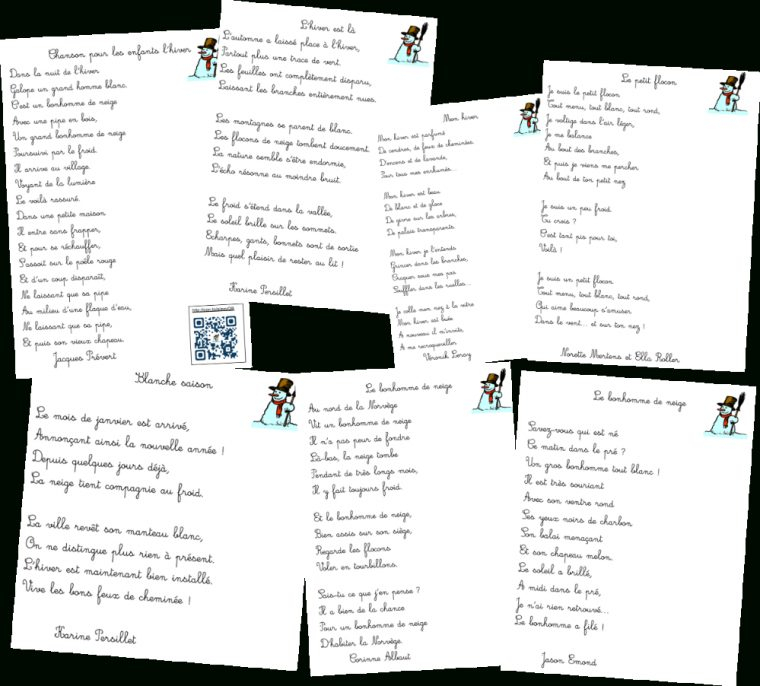 Chanson pour les enfants l'hiver
Dans la nuit de l'hiver
Galope un grand homme blanc.
C'est un bonhomme de neige
Avec une pipe en bois,
Un grand bonhomme de neige
Poursuivi par le froid.
Il arrive au village.
Voyant de la lumière
Le voilà rassuré.
Dans une petite maison
Il entre sans frapper,
Et pour se réchauffer,
S'assoit sur le poêle rouge
Et d'un coup disparaît,
Ne laissant que sa pipe
Au milieu d'une flaque d'eau,
Ne laissant que sa pipe,
Et puis son vieux chapeau.
Jacques Prévert
L'hiver est là
L'automne a laissé place à l'hiver,
Partout plus une trace de vert.
Les feuilles ont complètement disparu,
Laissant les branches entièrement nues.
Les montagnes se parent de blanc.
Les flocons de neige tombent doucement.
La nature semble s'être endormie,
L'écho résonne au moindre bruit.
Le froid s'étend dans la vallée,
Le soleil brille sur les sommets.
Echarpes, gants, bonnets sont de sortie
Mais quel plaisir de rester au lit !
Karine Persillet
Mon hiver
Mon hiver est parfumé
De cendres, de feux de cheminées
D'encens et de lavande,
Pour tous mes enrhumés...
Mon hiver est beau
De blanc et de glace
De givre sur les arbres,
De palais transparents.
Mon hiver je l'entends
Grincer dans les branches,
Craquer sous mes pas
Souffler dans les ruelles...
Je colle mon nez à la vitre
Mon hiver est buée
A nouveau il m'invite
A me recroqueviller
Véronik Leray
Le petit flocon
Je suis le petit flocon
Tout menu, tout blanc, tout rond,
Je voltige dans l'air léger,
Je me balance
Au bout des branches,
Et puis je viens me percher
Au bout de ton petit nez
Je suis un peu froid
Tu crois ?
C'est tant pis pour toi,
Voilà !
Je suis un petit flocon
Tout menu, tout blanc, tout rond,
Qui aime beaucoup s'amuser
Dans le vent... et sur ton nez !
Norette Mertens et Ella Roller
Blanche saison
Le mois de janvier est arrivé,
Annonçant ainsi la nouvelle année !
Depuis quelques jours déjà,
La neige tient compagnie au froid.
La ville revêt son manteau blanc,
On ne distingue plus rien à présent.
L'hiver est maintenant bien installé.
Vive les bons feux de cheminée !
Karine Persillet
Le bonhomme de neige
Au nord de la Norvège
Vit un bonhomme de neige
Il n'a pas peur de fondre
Là-bas, la neige tombe
Pendant de très longs mois,
Il y fait toujours froid.
Et le bonhomme de neige,
Bien assis sur son siège,
Regarde les flocons
Voler en tourbillons.
Sais-tu ce que j'en pense ?
Il a bien de la chance
Pour un bonhomme de neige
D'habiter la Norvège.
Corinne Albaut
Le bonhomme de neige
Savez-vous qui est né
Ce matin dans le pré ?
Un gros bonhomme tout blanc !
Il est très souriant
Avec son ventre rond
Ses yeux noirs de charbon
Son balai menaçant
Et son chapeau melon.
Le soleil a brillé,
A midi dans le pré,
Je n'ai rien retrouvé...
Le bonhomme a filé !
Jason Emond